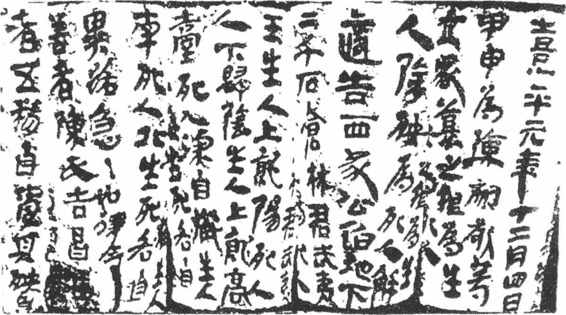 熹平元年十二月四日
甲申為陳叔敬等
立冢墓之根為生
人除殃為死人解
適告西冢公伯地下
二千石倉林君武夷
王生人上就陽死人
下歸陰生人上就高
臺死人深自藏生人
南死人北生死各自
異路急々如律令
善者陳氏吉昌惡
者五精自受其殃急